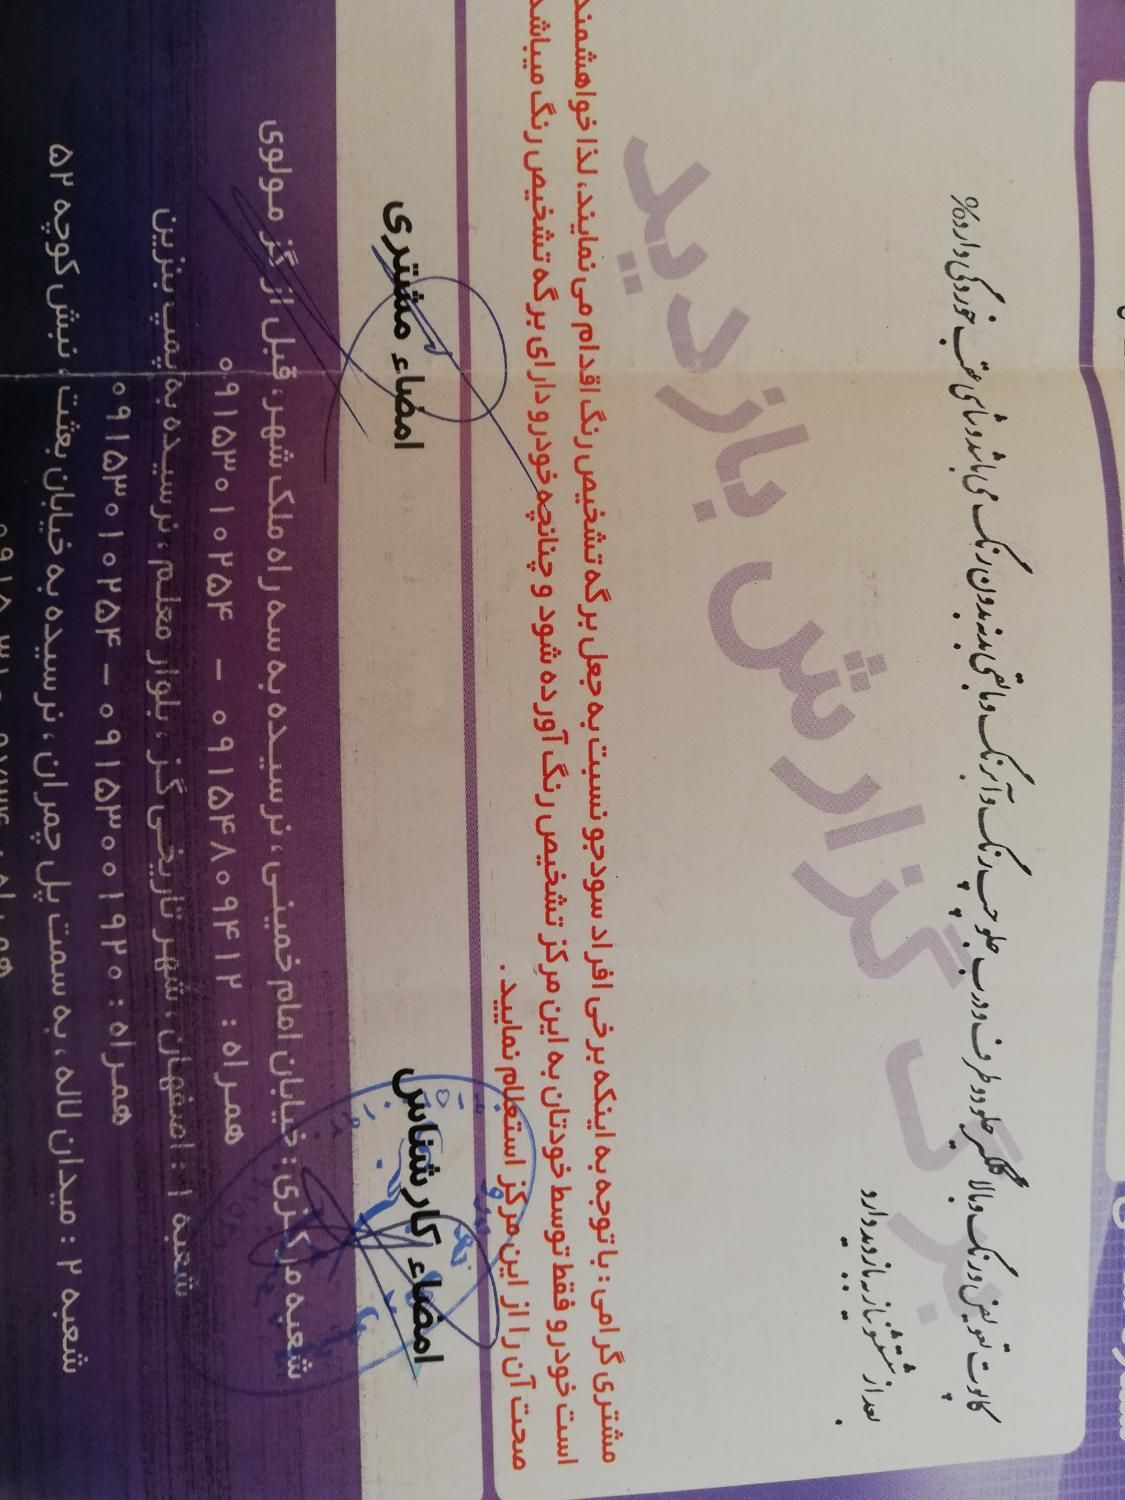 کاپوت تعویض و رنگ و بالا گلگیر جلو دو طرف و درب جلو چپ رنگ و آبرنگ و مابقی بدنه بدون رنگ می باشد و شاسی عقب خوردگی دارد%
بعد از شستشو نیاز به بازدید دارد
برگ گزارش بازدید
مشتری گرامی : با توجه به اینکه برخی افراد سودجو نسبت به جعل برگه تشخیص رنگ اقدام می نمایند، لذا خواهشمند
است خودرو فقط توسط خودتان به این مرکز تشخیص رنگ آورده شود و چنانچه خودرو دارای برگه تشخیص رنگ میباشد
صحت آن را از این مرکز استعلام نمایید.
امضاء کارشناس
امضاء مشتری
شعبه مرکزی : خیابان امام خمینی، نرسیده به سه راه ملک شهر، قبل از گز مولوی
همراه : ۰۹۱۵۴۸۰۹۴۱۲ - ۰۹۱۵۳۰۱۰۲۵۴
شعبه ۱ : اصفهان ، شهر تاریخی گز ، بلوار معلم ، نرسیده به پمپ بنزین
همراه : ۰۹۱۵۳۰۰۱۹۲۰ - ۰۹۱۵۳۰۱۰۲۵۴
شعبه ۲ : میدان لاله ، به سمت پل چمران ، نرسیده به خیابان بعثت ، نبش کوچه ۵۲